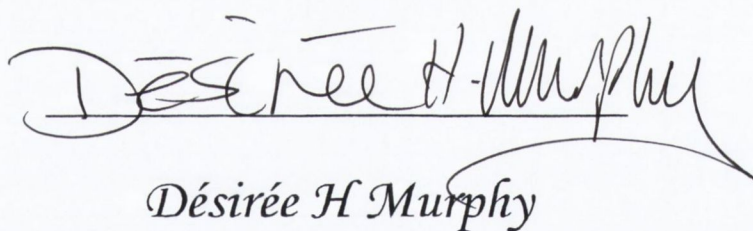 Désirée H-Murphy
Désirée H Murphy